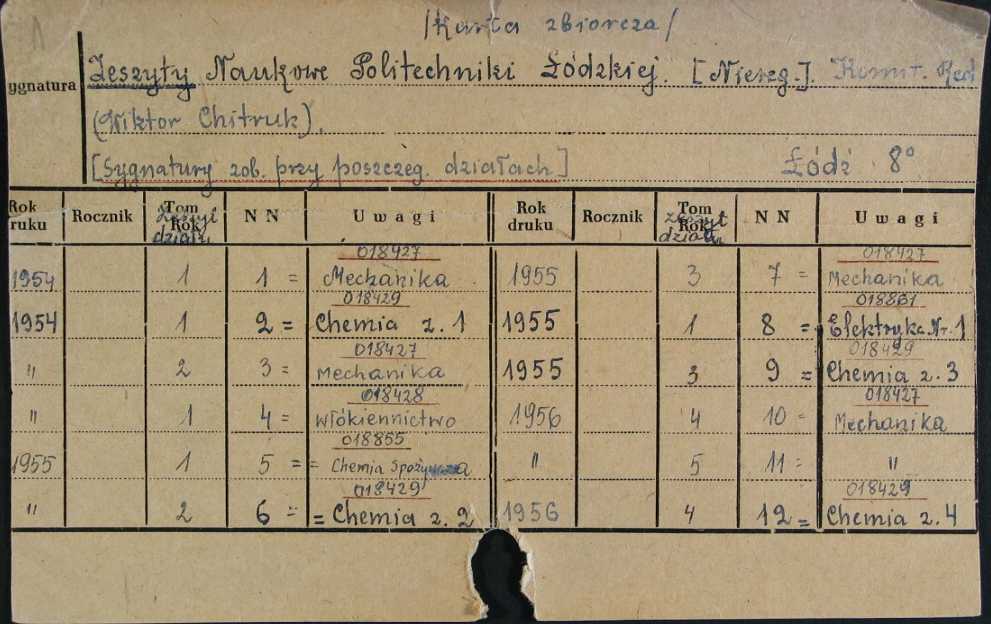 /Karta zbiorcza/
ygnatura Zeszyty Naukowe Politechniki Łódzkiej. [Niereg.]. Komit. Red
(Wiktor Chitruk).
[Sygnatury zob. przy poszczeg. działach] Łódź 8°
Rok ruku Rocznik Tom Rok zeszyt działu N N Uwagi Rok druku Rocznik Tom Rok zeszyt działu N N Uwagi
018427 018427
1954 1 1 = Mechanika 1955 3 7 = Mechanika
018429 018861
1954 1 2 = Chemia z. 1 1955 1 8 = Elektryka Nr. 1
018427 018429
" 2 3 = Mechanika 1955 3 9 = Chemia z. 3
018428 018427
" 1 4 = Włókiennictwo 1956 4 10 = Mechanika
018855
1955 1 5 = = Chemia Spożywcza " 5 11 = "
018429 018429
" 2 6 = = Chemia z. 2 1956 4 12 = Chemia z. 4